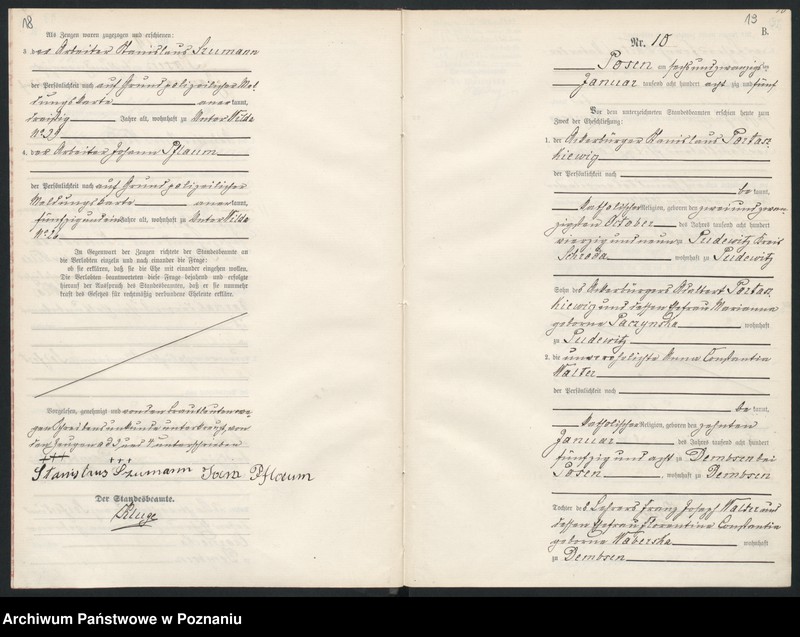 18
Als Zeugen waren zugezogen und erschienen:
3. der Arbeiter Stanislaus Szumann
der Persönlichkeit nach auf Grund polizeilicher Mel-
dungskarte anerkannt,
dreißig Jahre alt, wohnhaft zu Unter Wilda
4. der Arbeiter Johann Pflaum
der Persönlichkeit nach auf Grund polizeilicher
Meldungskarte anerkannt,
fünfzig und ein Jahre alt, wohnhaft zu Unter Wilda
In Gegenwart der Zeugen richtete der Standesbeamte an
die Verlobten einzeln und nach einander die Frage:
ob sie erklären, daß sie die Ehe mit einander eingehen wollen.
Die Verlobten beantworteten diese Frage bejahend und erfolgte
hierauf der Ausspruch des Standesbeamten, daß er sie nunmehr
kraft des Gesetzes für rechtmäßig verbundene Eheleute erkläre.
Vorgelesen, genehmigt und von den Brautleuten we-
gen Schreibensunkunde unterkreuzt, von
den Zeugen ad 3 und 4 unterschrieben
+++ +++
Stanislus Szumann Jan Pflaum
Der Standesbeamte.
Kluge
19
B.
Nr. 10
Posen am sechsundzwanzigsten
Januar tausend acht hundert achtzig und fünf
Vor dem unterzeichneten Standesbeamten erschien heute zum
Zweck der Eheschließung:
1. der Ackerbürger Stanislaus Portas-
kiewig
der Persönlichkeit nach
bekannt,
katholischer Religion, geboren den zweiundzwan-
zigsten October des Jahres tausend acht hundert
vierzig und neun zu Pudewitz Kreis
Schroda, wohnhaft zu Pudewitz
Sohn des Ackerbürgers Adalbert Portas-
kiewig und dessen Ehefrau Marianna
geborne Paczynska wohnhaft
zu Pudewitz
2. die unverehelichte Anna Constantia
Walter
der Persönlichkeit nach
bekannt,
katholischer Religion, geboren den zehnten
Januar des Jahres tausend acht hundert
fünfzig und acht zu Dembsen bei
Posen, wohnhaft zu Dembsen
Tochter des Lehrers Franz Joseph Walter und
dessen Ehefrau Florentine Constantia
geborne Waberska wohnhaft
zu Dembsen
Archiwum Państwowe w Poznaniu